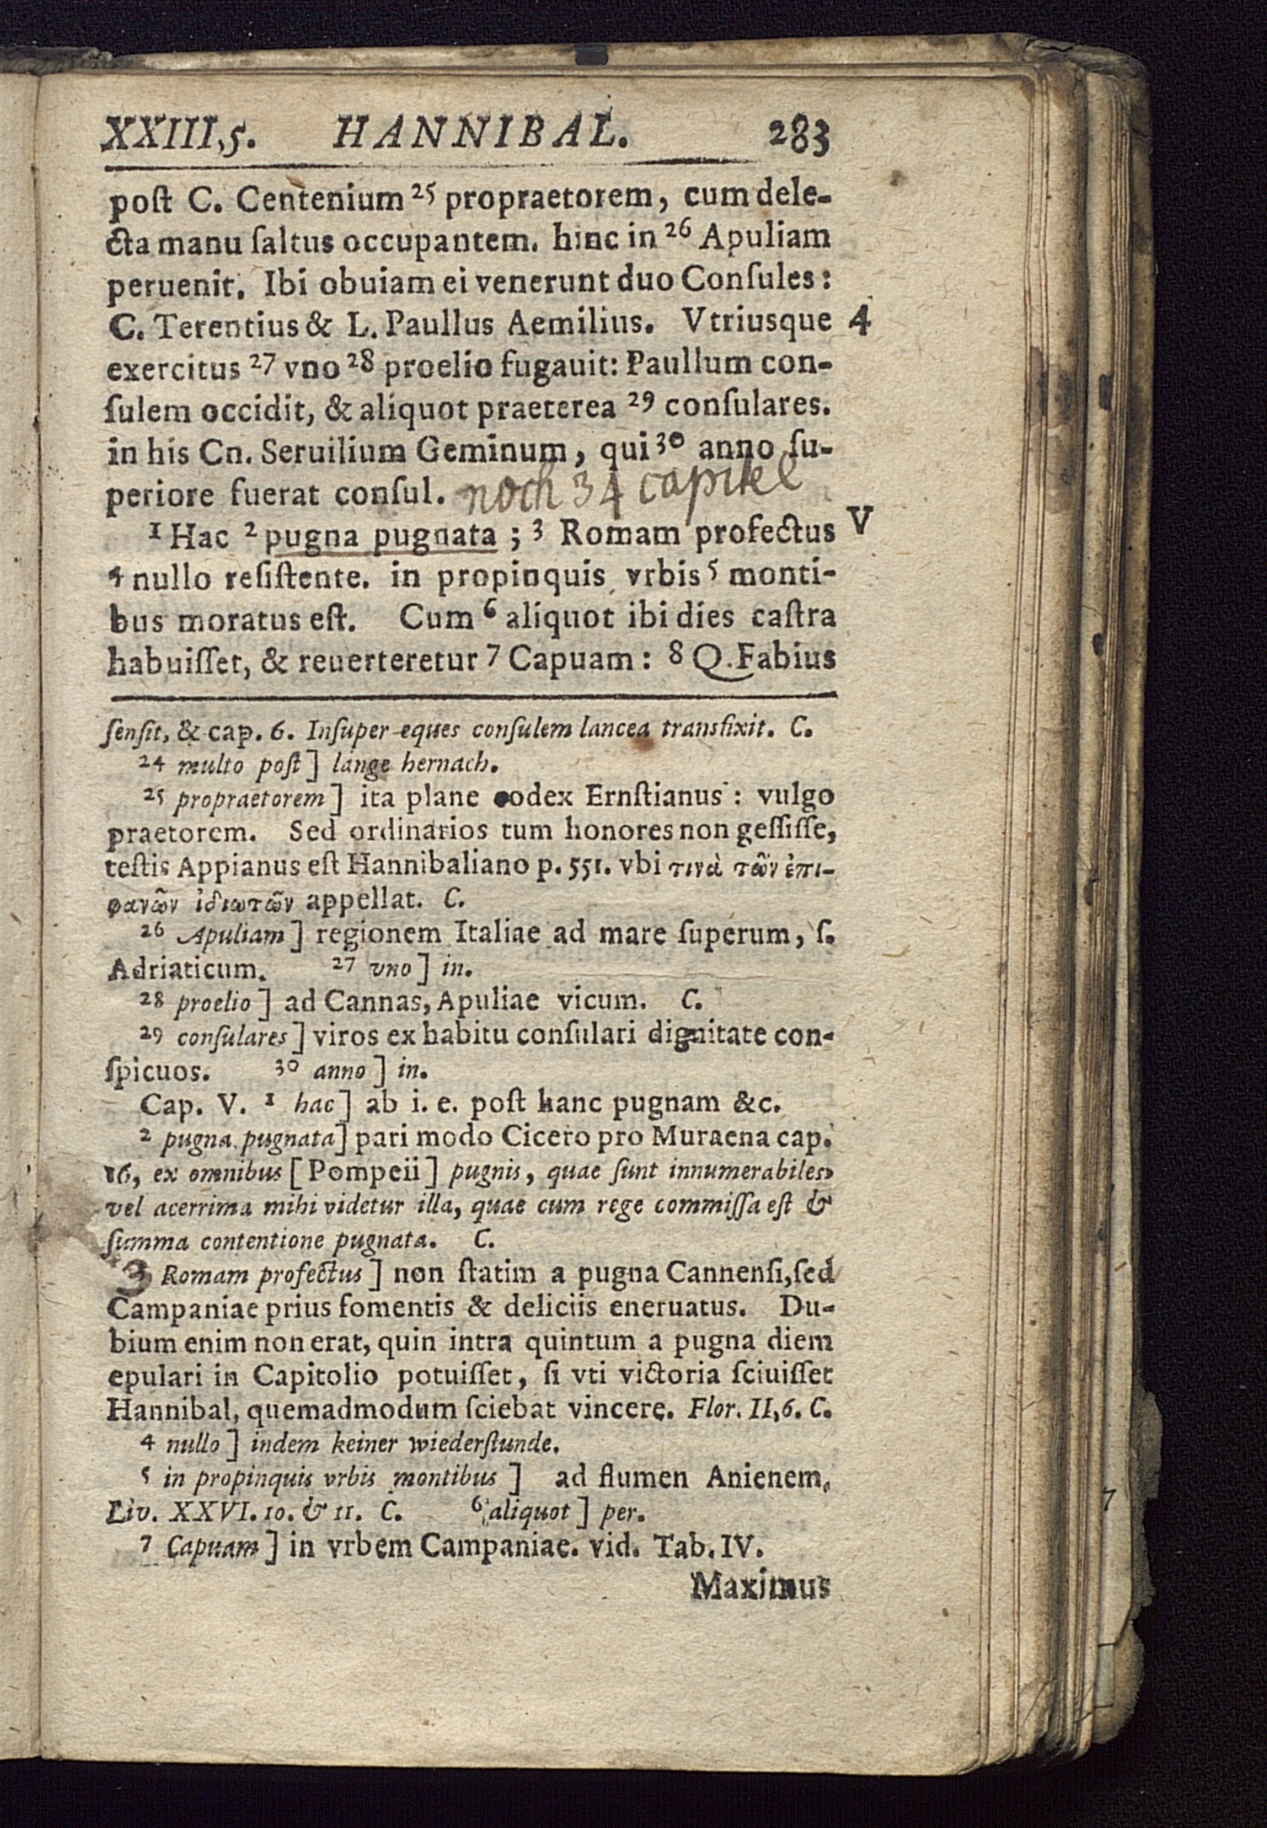 XXIII,5. HANNIBAL. 283
poſt C. Centenium 25 propraetorem, cum dele-
cta manu ſaltus occupantem. hinc in 26 Apuliam
peruenit. Ibi obuiam ei venerunt duo Conſules:
C. Terentius & L. Paullus Aemilius. Vtriusque 4
exercitus 27 vno 28 proelio fugauit: Paullum con-
ſulem occidit, & aliquot praeterea 29 conſulares.
in his Cn. Seruilium Geminum, qui 30 anno ſu-
periore fuerat conſul. noch 34 capitel
1 Hac 2 pugna pugnata; 3 Romam profectus V
4 nullo reſiſtente. in propinquis vrbis 5 monti-
bus moratus eſt. Cum 6 aliquot ibi dies caſtra
habuiſſet, & reuerteretur 7 Capuam: 8 Q. Fabius
ſenſit, & cap. 6. Inſuper eques conſulem lancea transfixit. C.
24 multo poſt] lange hernach.
25 propraetorem] ita plane codex Ernſtianus: vulgo
praetorem. Sed ordinarios tum honores non geſſiſſe,
teſtis Appianus eſt Hannibaliano p. 551. vbi τινὰ τῶν ἐπι-
φανῶν ἰδιωτῶν appellat. C.
26 Apuliam] regionem Italiae ad mare ſuperum, ſ.
Adriaticum. 27 vno] in.
28 proelio] ad Cannas, Apuliae vicum. C.
29 conſulares] viros ex habitu conſulari dignitate con-
ſpicuos. 30 anno] in.
Cap. V. 1 hac] ab i. e. poſt hanc pugnam &c.
2 pugna pugnata] pari modo Cicero pro Muraena cap.
16, ex omnibus [Pompeii] pugnis, quae ſunt innumerabiles,
vel acerrima mihi videtur illa, quae cum rege commiſſa eſt &
ſumma contentione pugnata. C.
3 Romam profectus] non ſtatim a pugna Cannenſi, ſed
Campaniae prius fomentis & deliciis eneruatus. Du-
bium enim non erat, quin intra quintum a pugna diem
epulari in Capitolio potuiſſet, ſi vti victoria ſciuiſſet
Hannibal, quemadmodum ſciebat vincere. Flor. II, 6. C.
4 nullo] indem keiner wiederſtunde.
5 in propinquis vrbis montibus] ad flumen Anienem,
Liv. XXVI. 10. & 11. C. 6 aliquot] per.
7 Capuam] in vrbem Campaniae. vid. Tab. IV.
Maximus